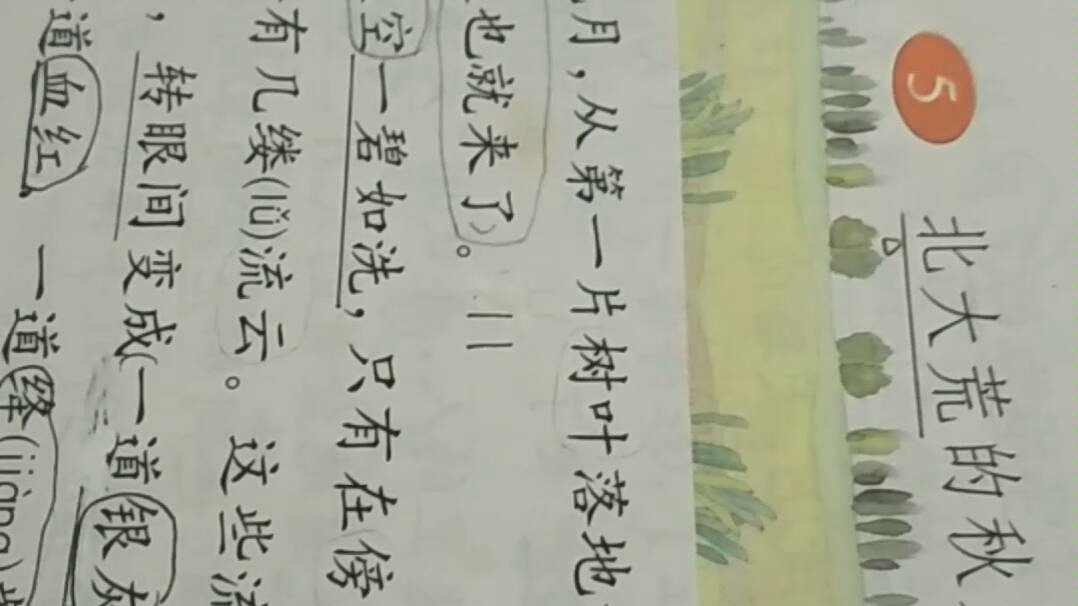 5
北大荒的秋
月，从第一片树叶落地
也就来了。
空一碧如洗，只有在傍
有几缕(lǚ)流云。这些流
，转眼间变成一道银灰
道血红、一道绛(jiàng)